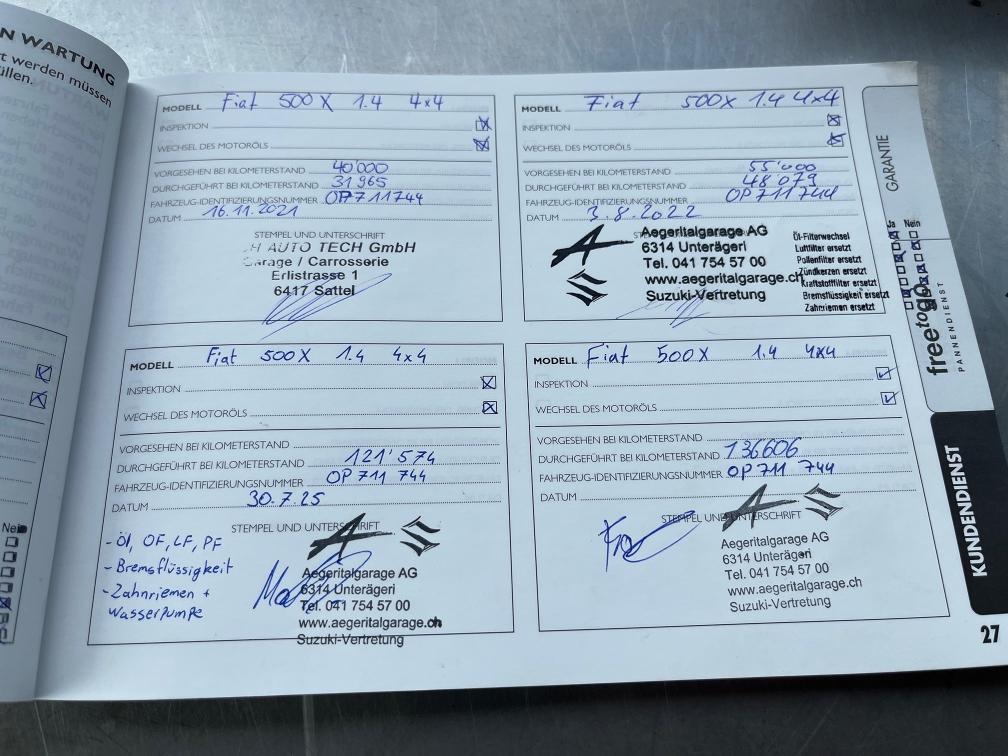 N WARTUNG
t werden müssen
üllen.
Nein
MODELL Fiat 500X 1.4 4x4
INSPEKTION
WECHSEL DES MOTORÖLS
VORGESEHEN BEI KILOMETERSTAND 40'000
DURCHGEFÜHRT BEI KILOMETERSTAND 31'965
FAHRZEUG-IDENTIFIZIERUNGSNUMMER OP711744
DATUM 16.11.2021
STEMPEL UND UNTERSCHRIFT
H AUTO TECH GmbH
Garage / Carrosserie
Erlistrasse 1
6417 Sattel
MODELL Fiat 500X 1.4 4x4
INSPEKTION
WECHSEL DES MOTORÖLS
VORGESEHEN BEI KILOMETERSTAND 55'000
DURCHGEFÜHRT BEI KILOMETERSTAND 48'079
FAHRZEUG-IDENTIFIZIERUNGSNUMMER OP711744
DATUM 3.8.2022
Aegeritalgarage AG
6314 Unterägeri
Tel. 041 754 57 00
www.aegeritalgarage.ch
Suzuki-Vertretung
Ja Nein
Öl-Filterwechsel
Luftfilter ersetzt
Pollenfilter ersetzt
Zündkerzen ersetzt
Kraftstofffilter ersetzt
Bremsflüssigkeit ersetzt
Zahnriemen ersetzt
MODELL Fiat 500X 1.4 4x4
INSPEKTION
WECHSEL DES MOTORÖLS
VORGESEHEN BEI KILOMETERSTAND
DURCHGEFÜHRT BEI KILOMETERSTAND 121'574
FAHRZEUG-IDENTIFIZIERUNGSNUMMER OP 711 744
DATUM 30.7.25
STEMPEL UND UNTERSCHRIFT
- Öl, OF, LF, PF
- Bremsflüssigkeit
- Zahnriemen +
Wasserpumpe
Aegeritalgarage AG
6314 Unterägeri
Tel. 041 754 57 00
www.aegeritalgarage.ch
Suzuki-Vertretung
MODELL Fiat 500X 1.4 4x4
INSPEKTION
WECHSEL DES MOTORÖLS
VORGESEHEN BEI KILOMETERSTAND
DURCHGEFÜHRT BEI KILOMETERSTAND 136606
FAHRZEUG-IDENTIFIZIERUNGSNUMMER OP 711 744
DATUM
STEMPEL UND UNTERSCHRIFT
Aegeritalgarage AG
6314 Unterägeri
Tel. 041 754 57 00
www.aegeritalgarage.ch
Suzuki-Vertretung
GARANTIE
freetogo
PANNENDIENST
KUNDENDIENST
27